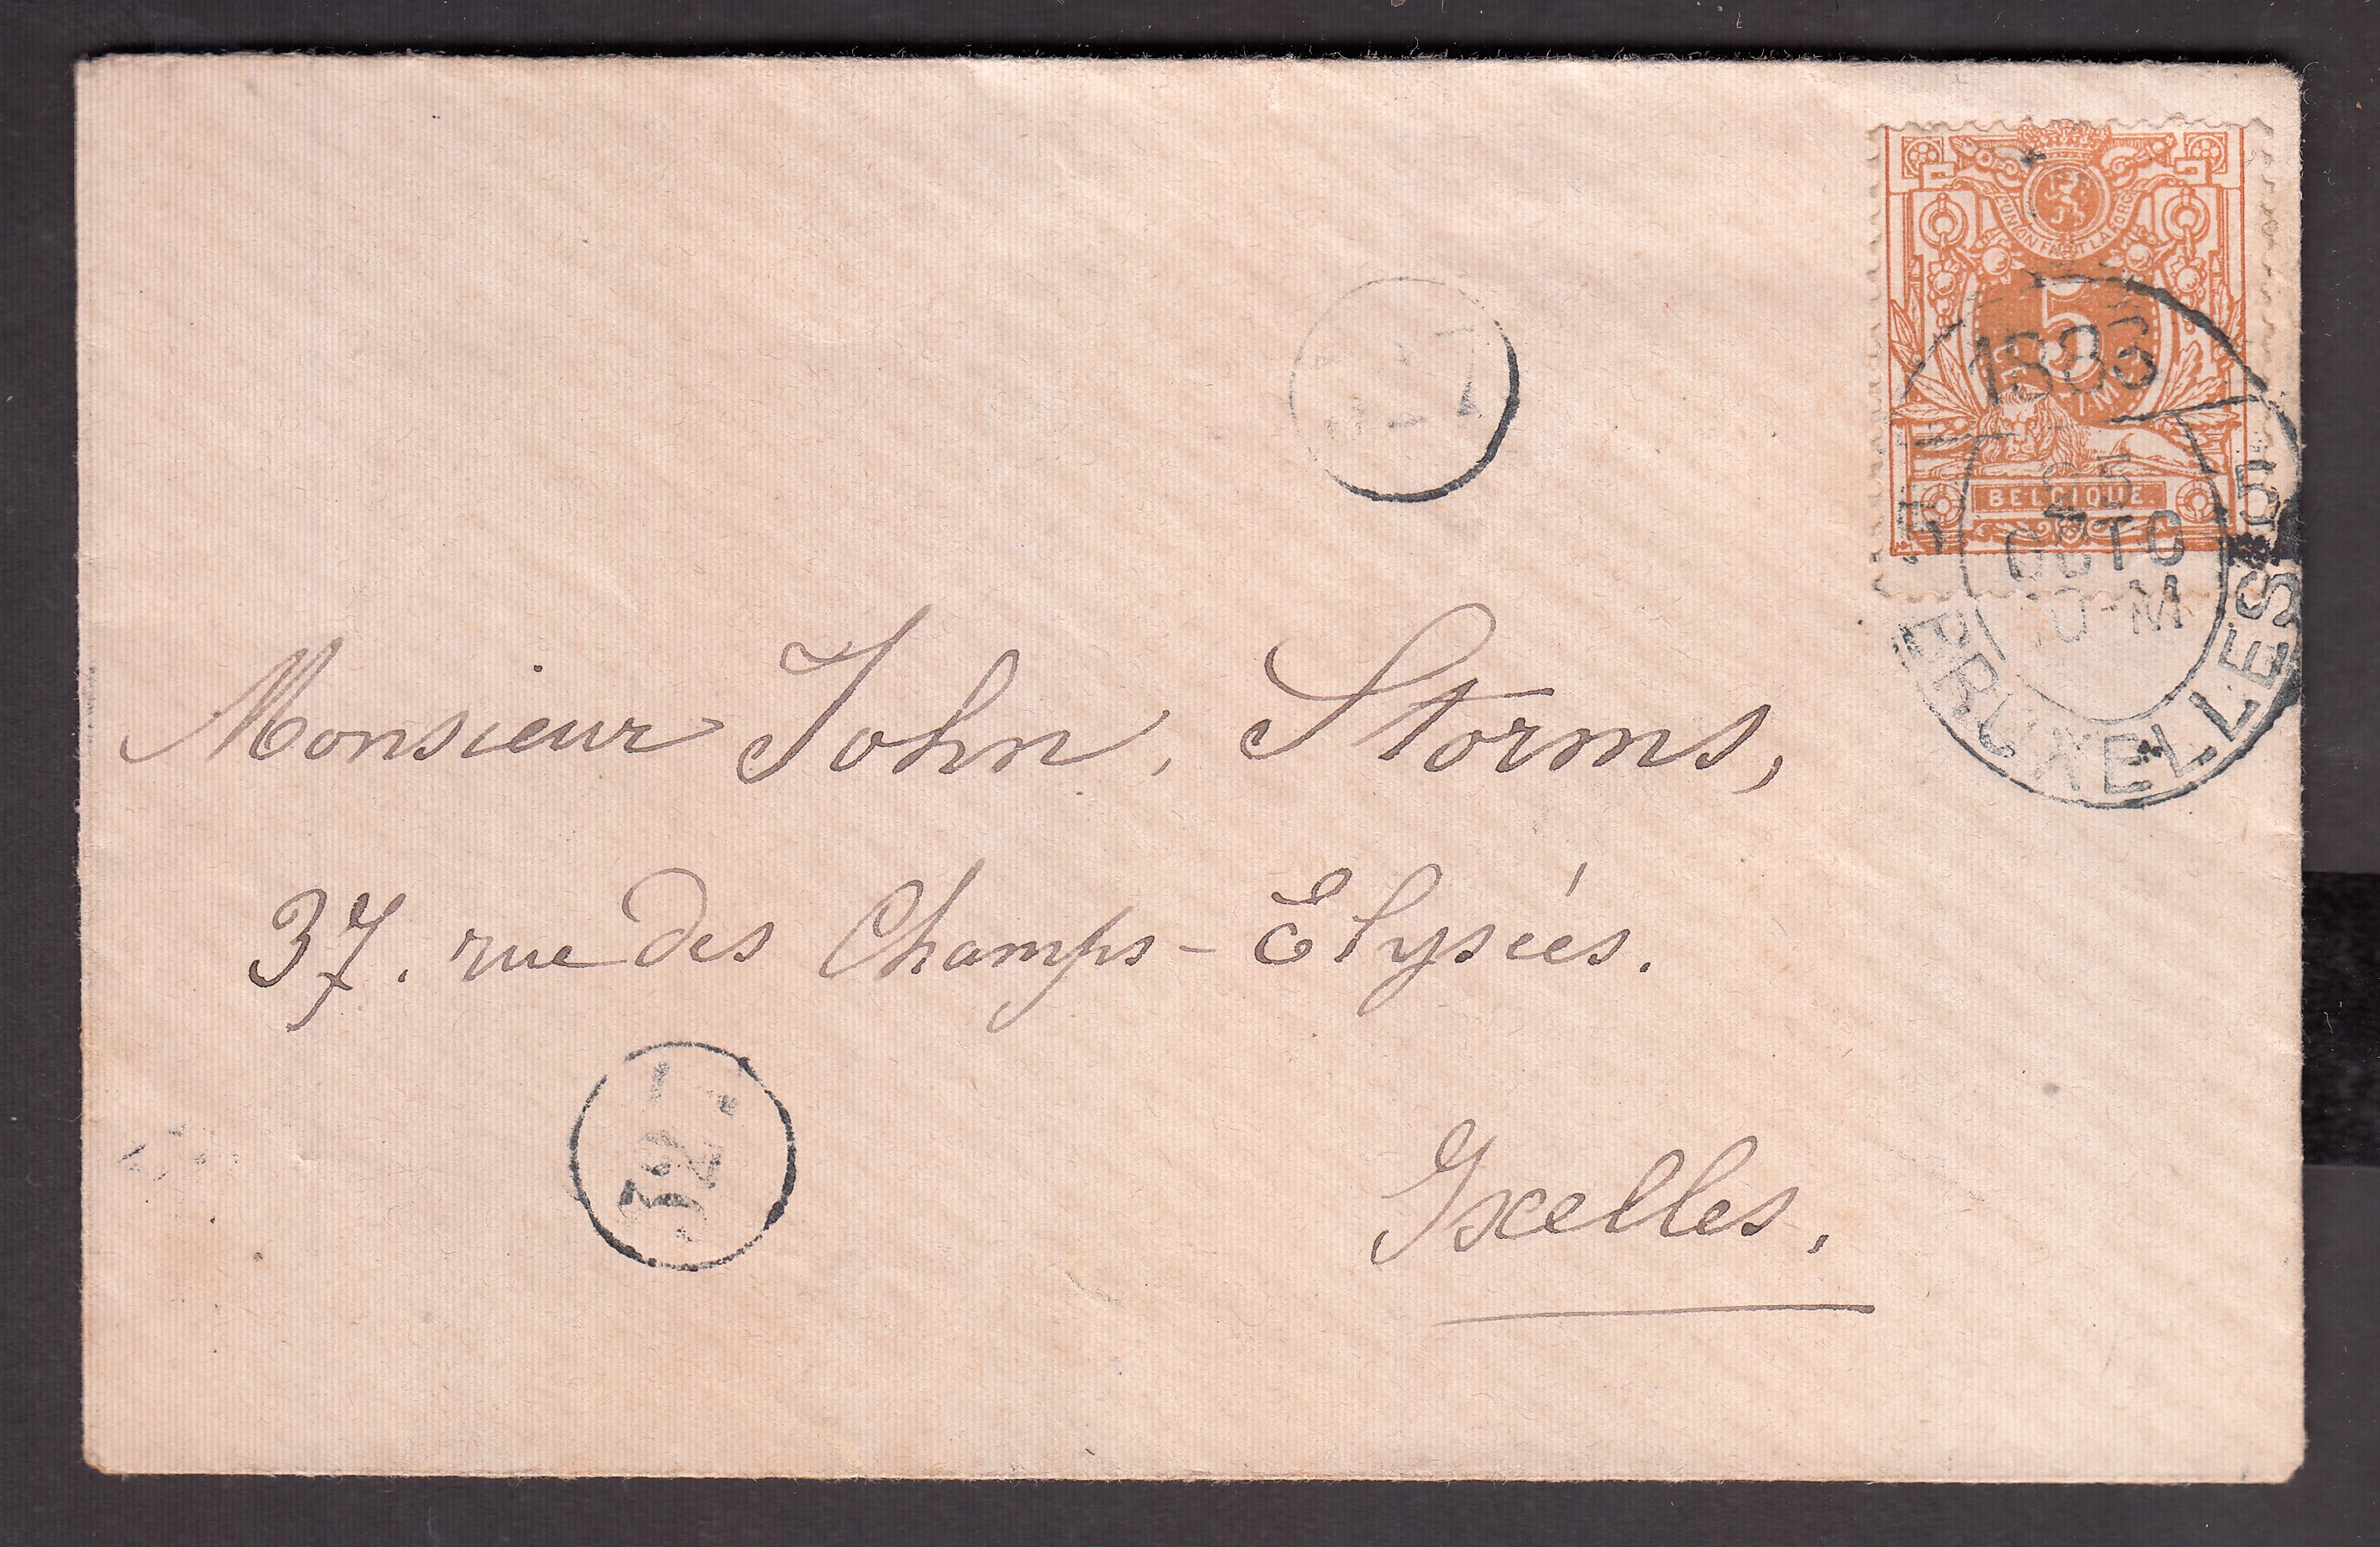 L'UNION FAIT LA FORCE
5
BELGIQUE.
1883
25
OCTO
10-M
BRUXELLES
5
5
Monsieur John, Storms,
37. rue des Champs-Elysées.
32
Ixelles.